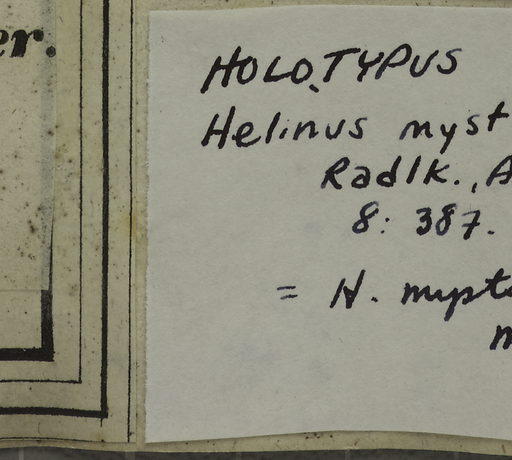 er.
HOLOTYPUS
Helinus myst
Radlk., A
8: 387.
= H. myst
m